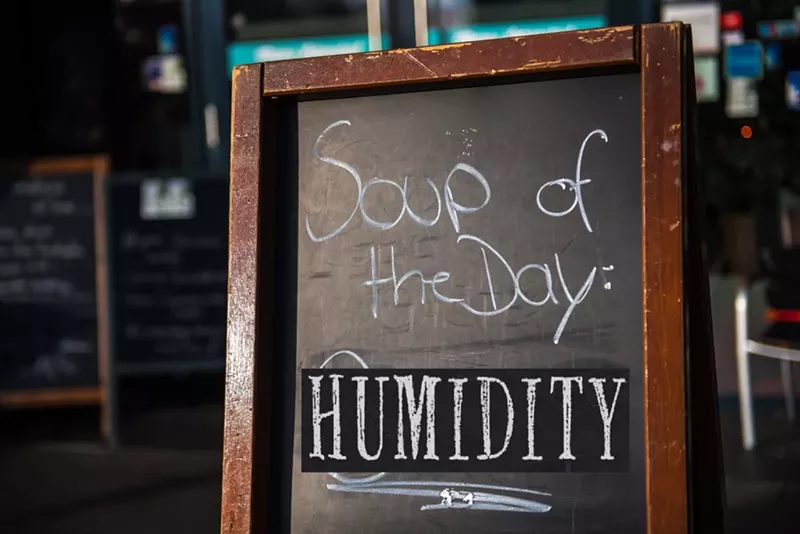 Soup of
the Day:
HUMIDITY